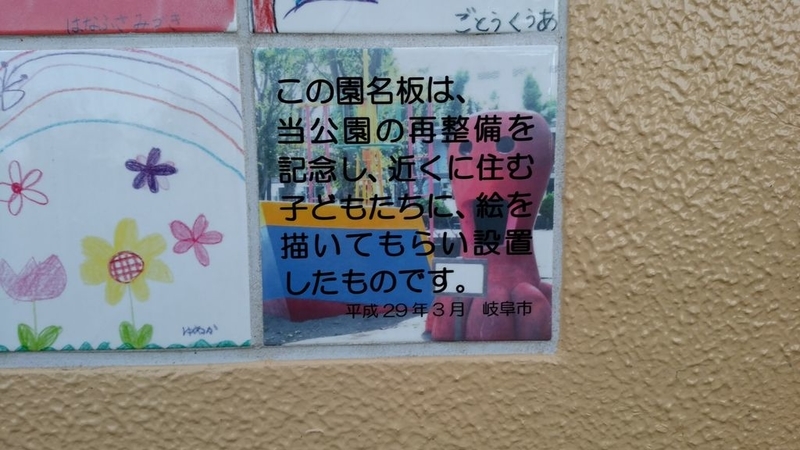 はなふさみづき
ごとうくうあ
この園名板は、
当公園の再整備を
記念し、近くに住む
子どもたちに、絵を
描いてもらい設置
したものです。
平成29年3月 岐阜市